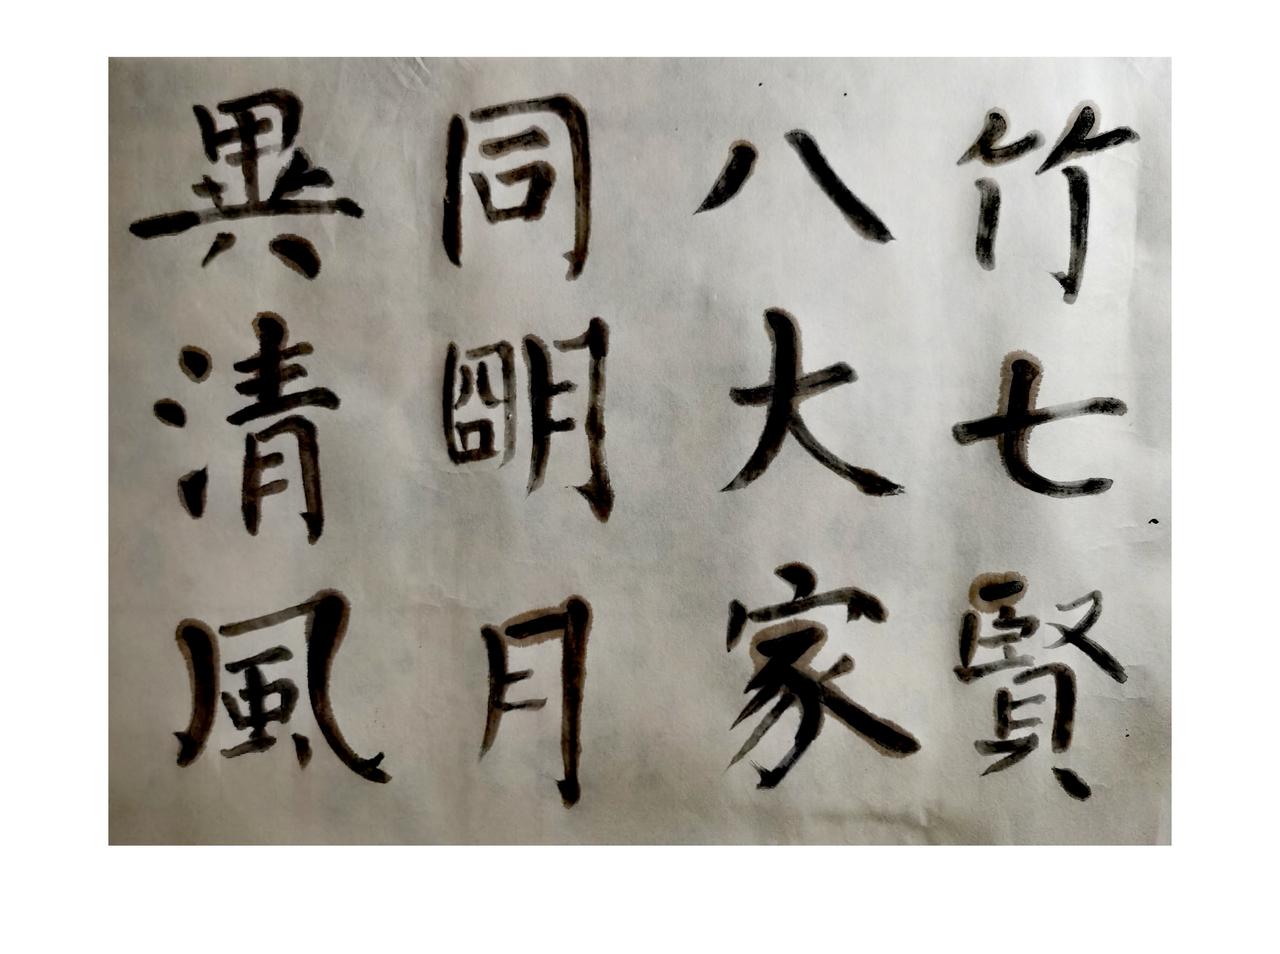 竹七賢
八大家
同朙月
異清風